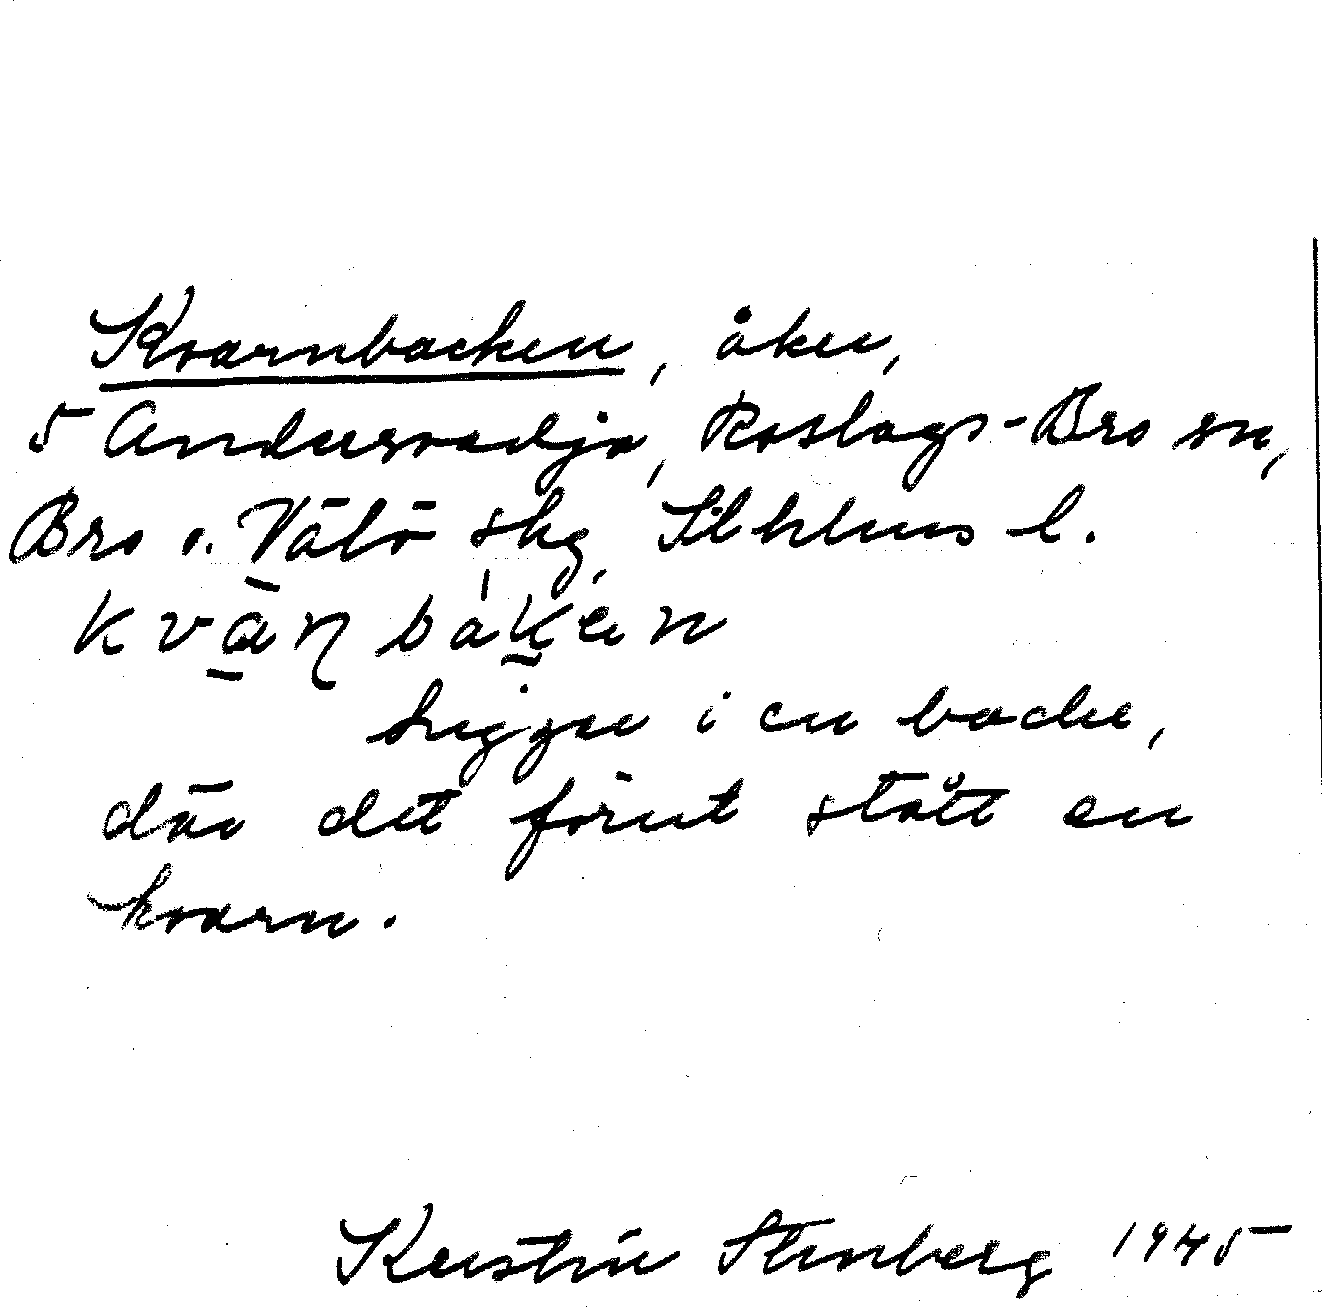 Kvarnbacken, åker,
5 Andersvedja, Roslags-Bro sn,
Bro o. Vätö skg, Sthlms l.
kvànbáken
Ligger i en backe,
där det förut stått en
kvarn.
Kerstin Stenberg 1945